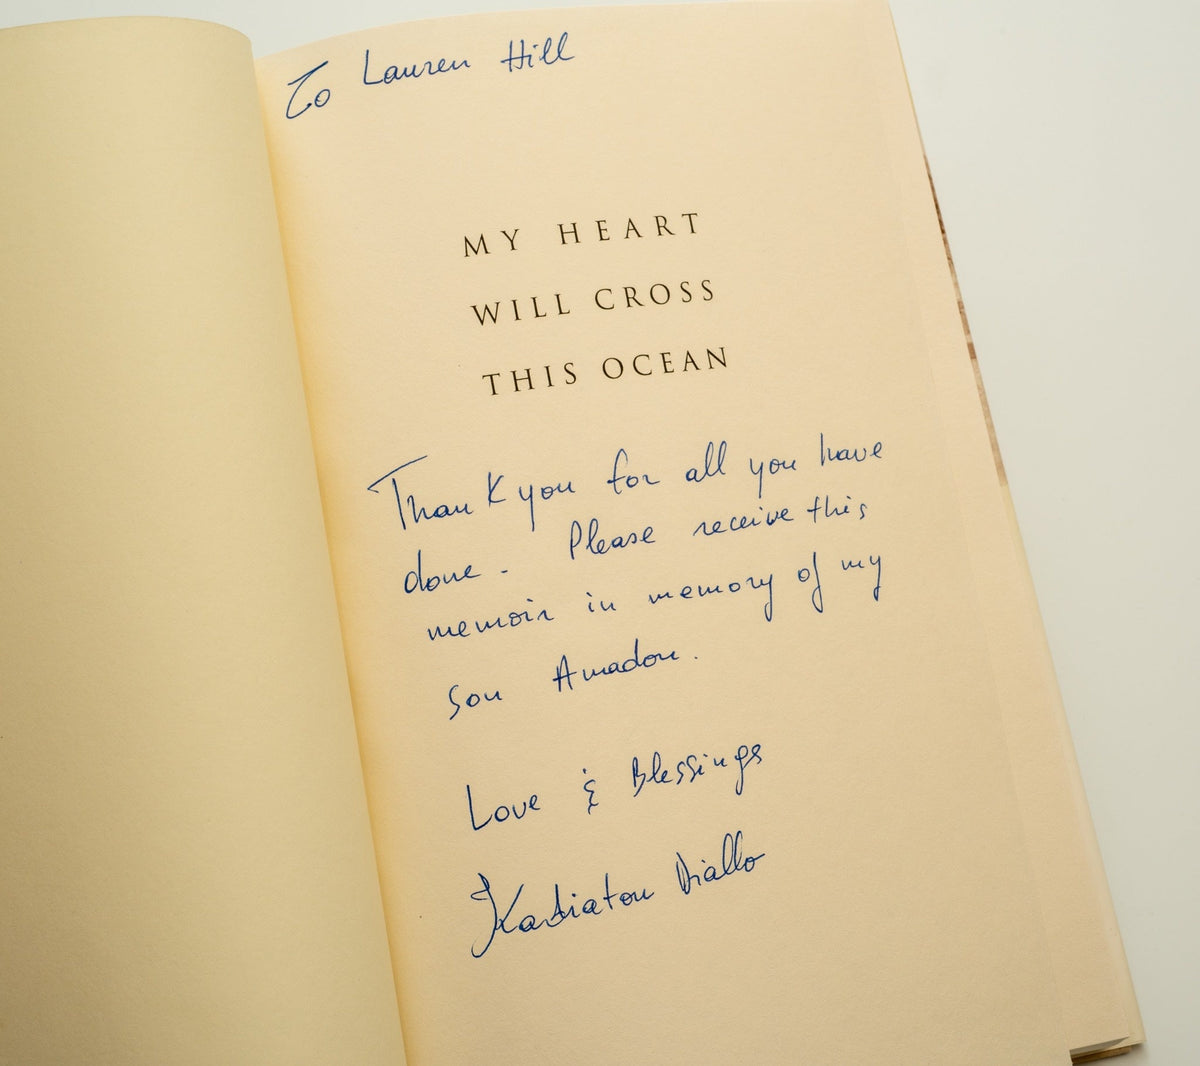 To Lauren Hill
MY HEART
WILL CROSS
THIS OCEAN
Thank you for all you have
done. Please receive this
memoir in memory of my
son Amadou.
Love & Blessings
Kadiatou Diallo